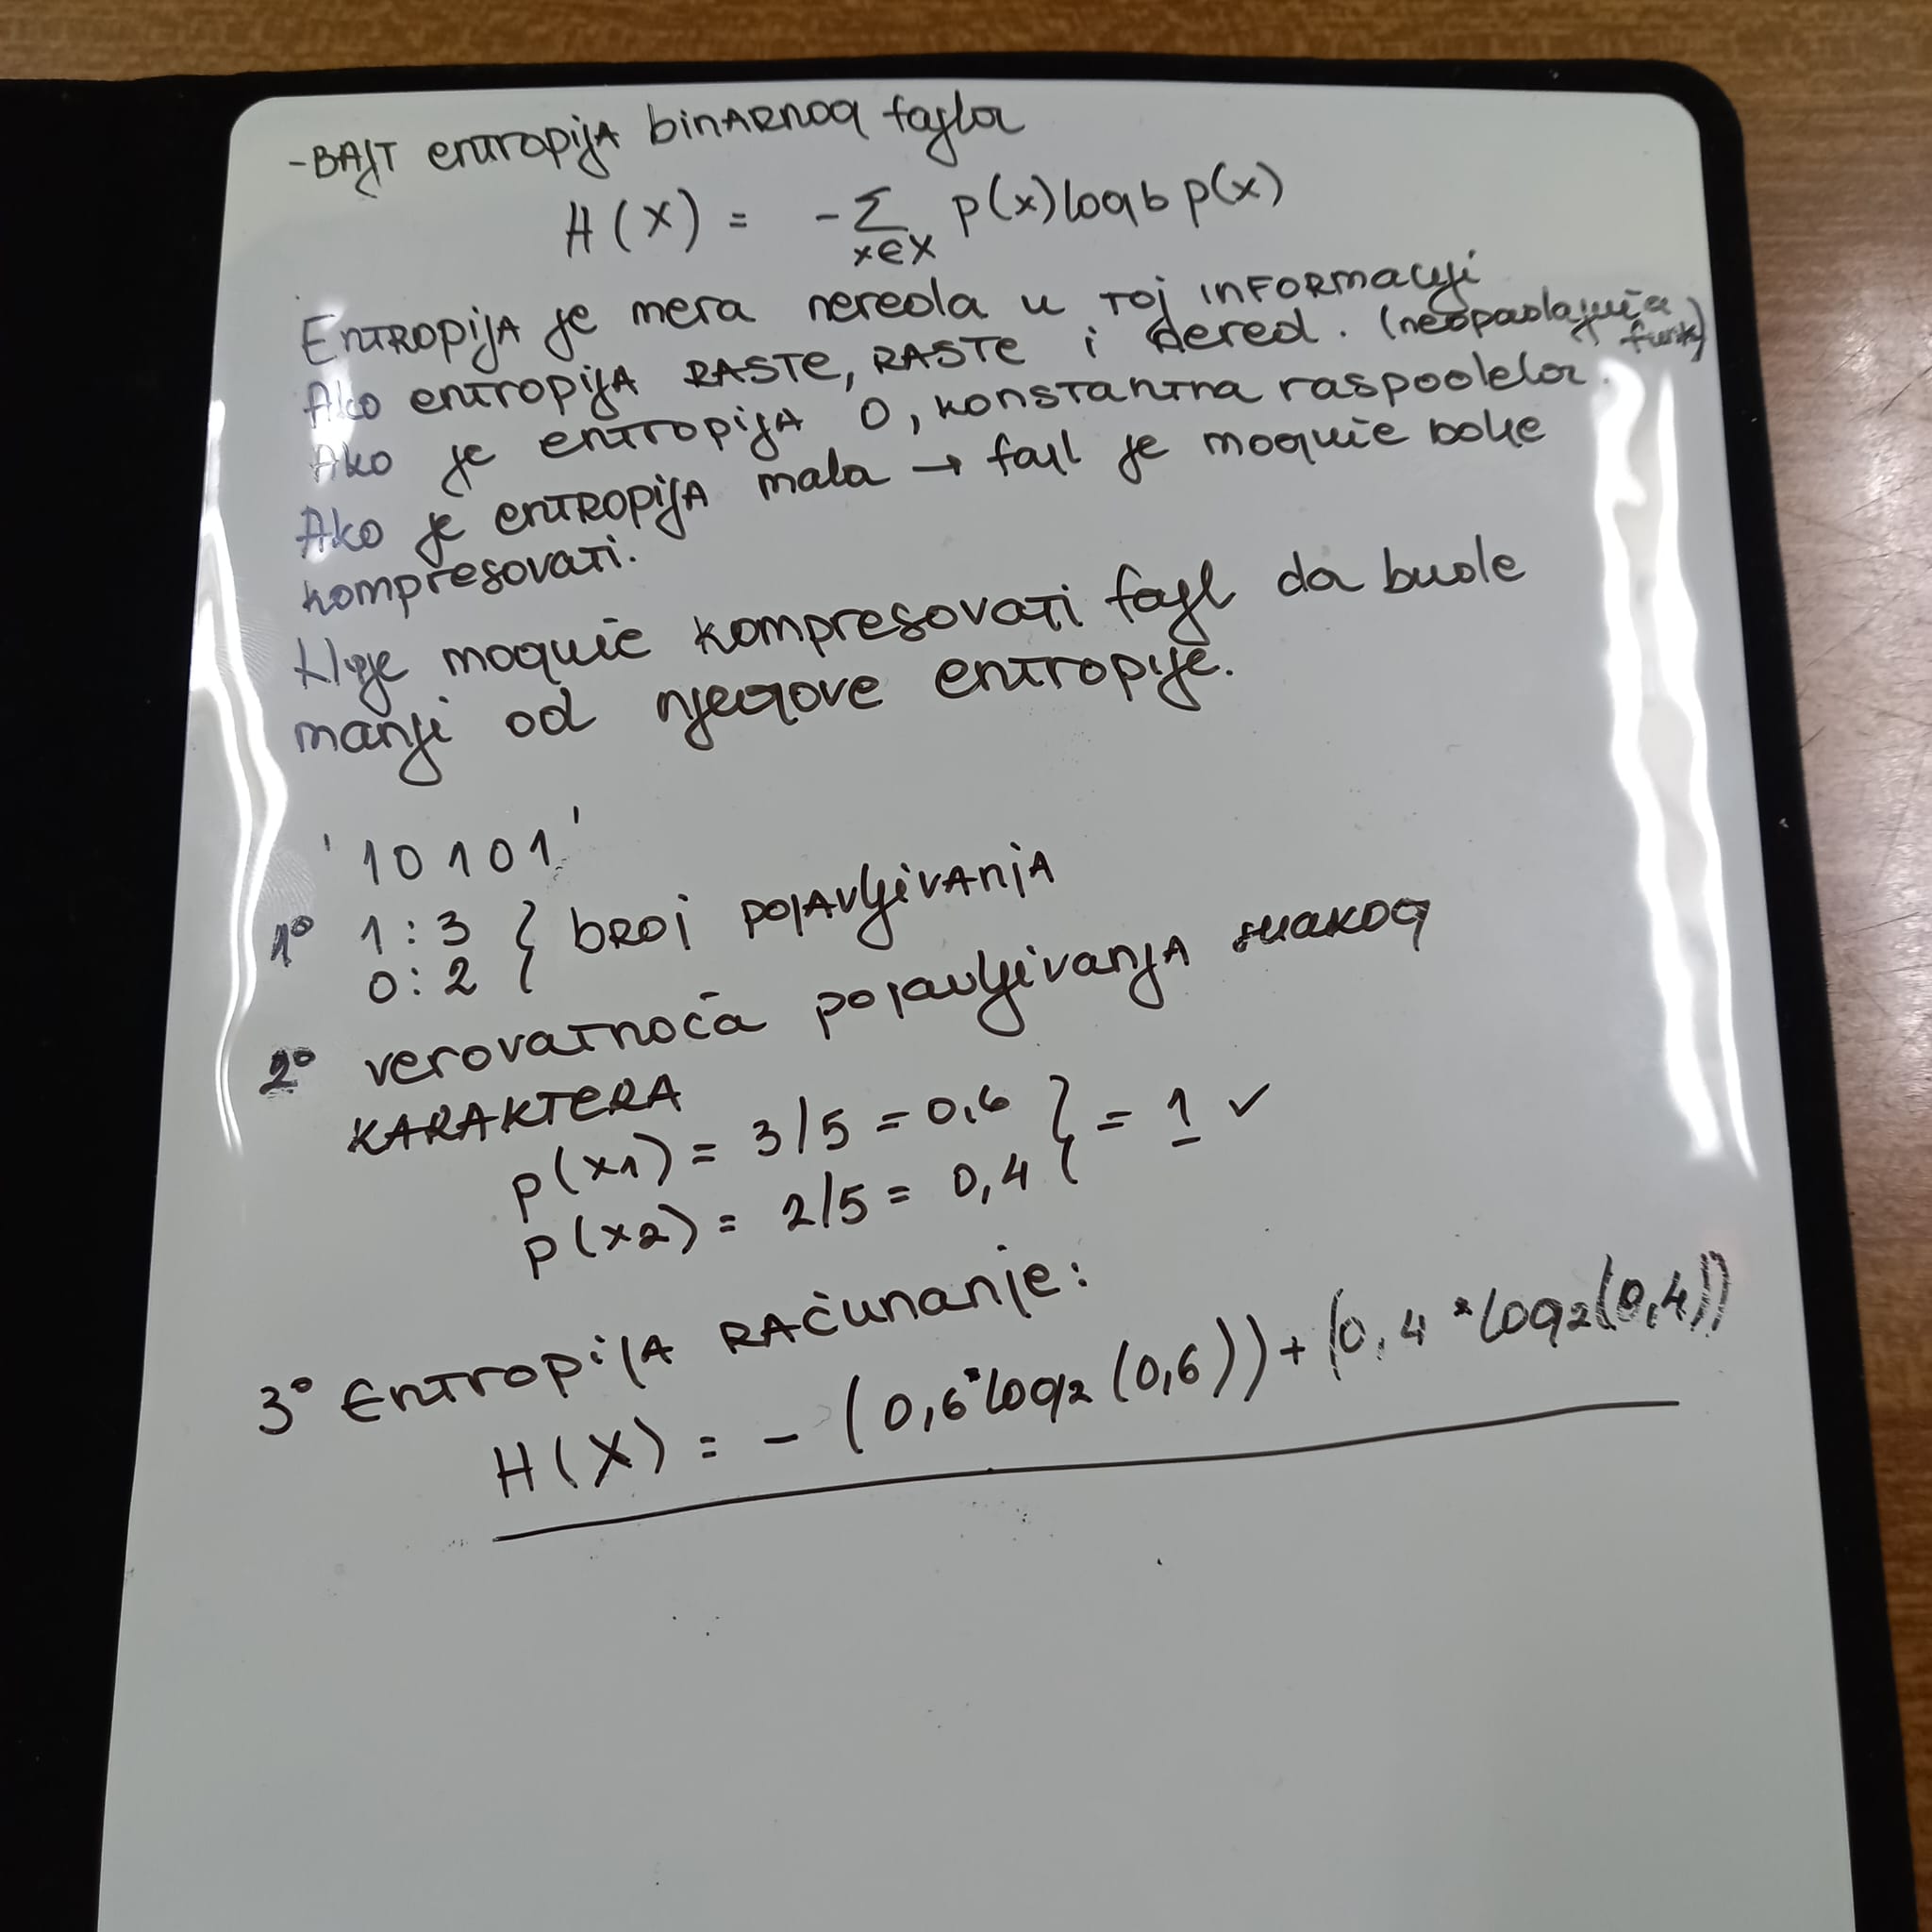 -BAJT entropija binarnog fajla
H(X) = -∑ p(x)logb p(x)
x∈X
Entropija je mera nereda u toj informaciji
Ako entropija raste, raste i nered. (neopadajuća funk)
Ako je entropija 0, konstantna raspodela.
Ako je entropija mala → fajl je moguće bolje
kompresovati.
Nije moguće kompresovati fajl da bude
manji od njegove entropije.
'10101'
1° 1:3 } broj pojavljivanja
0:2
2° verovatnoća pojavljivanja svakog
karaktera
p(x1) = 3/5 = 0,6 } = 1 ✓
p(x2) = 2/5 = 0,4
3° Entropija računanje:
H(X) = - (0,6*log2(0,6))+(0,4*log2(0,4))